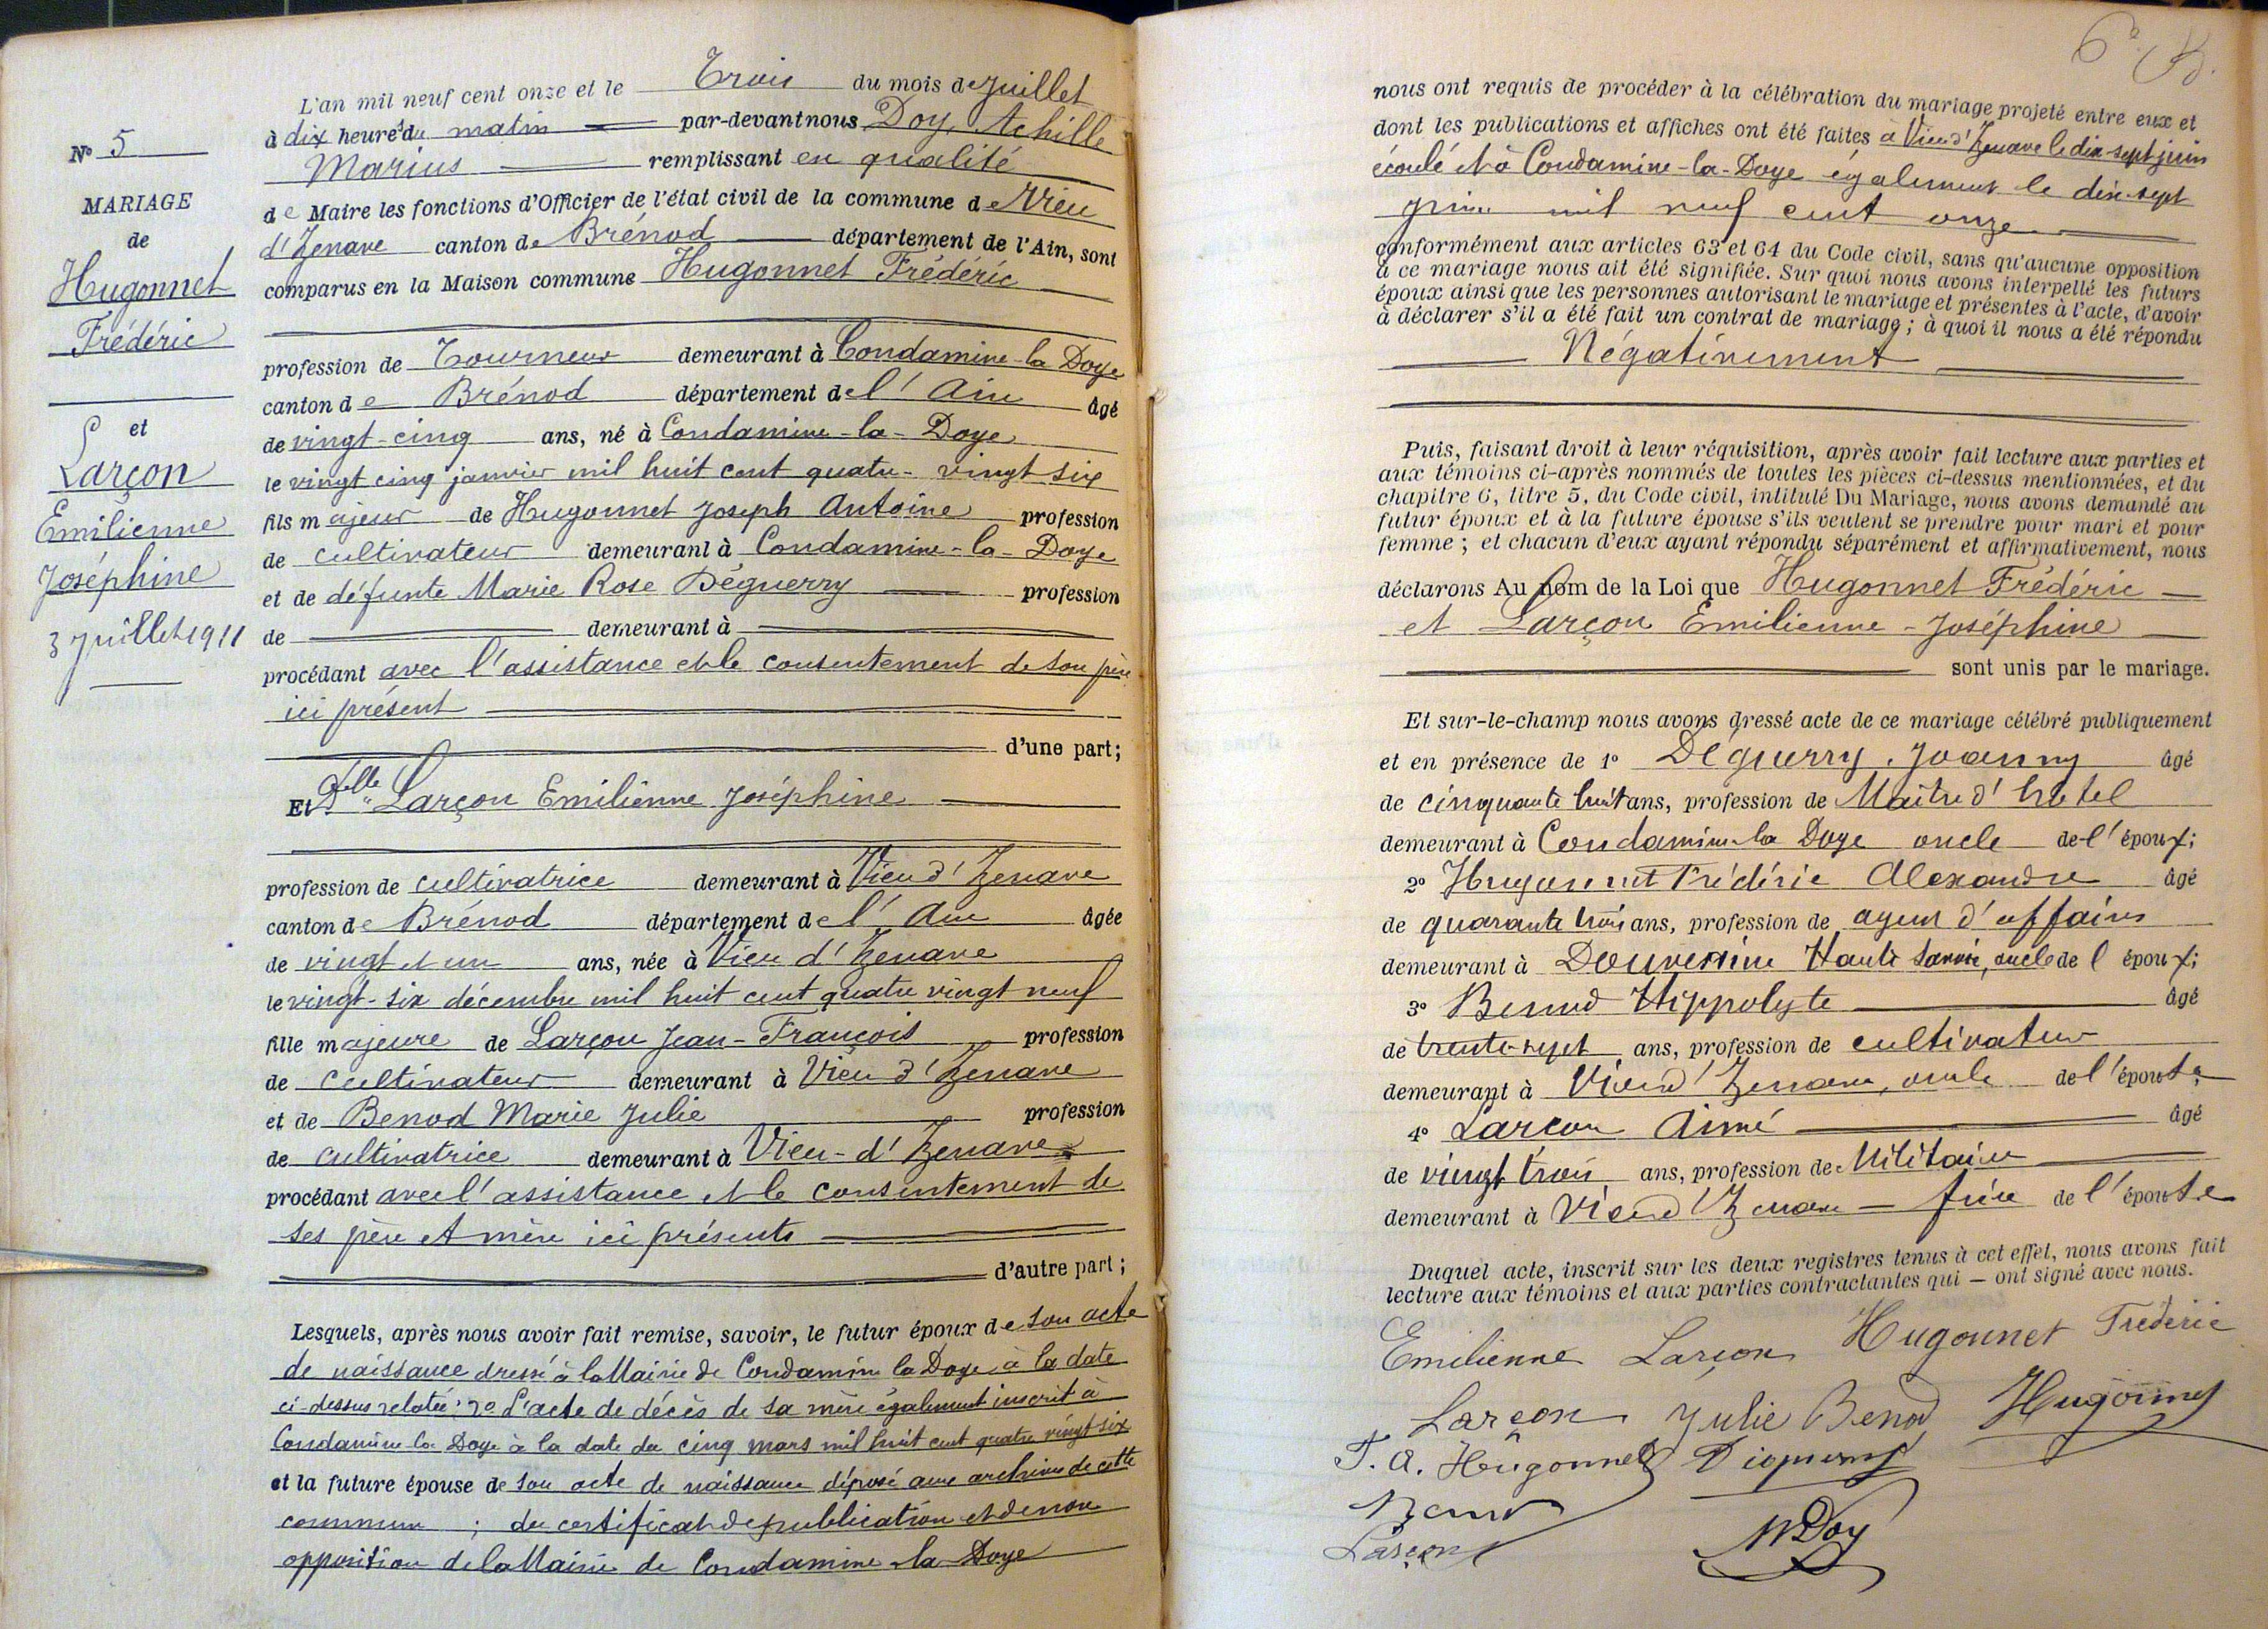 N° 5
MARIAGE
de
Hugonnet
Frédéric
et
Larçon
Emilienne
Joséphine
3 Juillet 1911
L'an mil neuf cent onze et le Trois du mois de Juillet
à dix heures du matin par-devant nous Doy, Achille
Marius remplissant en qualité
de Maire les fonctions d'Officier de l'état civil de la commune de Vieu
d'Izenave canton de Brénod département de l'Ain, sont
comparus en la Maison commune Hugonnet Frédéric
profession de Tourneur demeurant à Condamine-la Doye
canton de Brénod département de l'Ain âgé
de vingt-cinq ans, né à Condamine-la-Doye
le vingt cinq janvier mil huit cent quatre-vingt six
fils majeur de Hugonnet Joseph Antoine profession
de cultivateur demeurant à Condamine-la-Doye
et de défunte Marie Rose Déguerry profession
de demeurant à
procédant avec l'assistance et le consentement de son père
ici présent
d'une part;
Et Delle Larçon Emilienne Joséphine
profession de cultivatrice demeurant à Vieu d'Izenave
canton de Brénod département de l'Ain âgée
de vingt et un ans, née à Vieu d'Izenave
le vingt-six décembre mil huit cent quatre vingt neuf
fille majeure de Larçon Jean-François profession
de cultivateur demeurant à Vieu d'Izenave
et de Benod Marie Julie profession
de cultivatrice demeurant à Vieu-d'Izenave
procédant avec l'assistance et le consentement de
ses père et mère ici présents
d'autre part;
Lesquels, après nous avoir fait remise, savoir, le futur époux de son acte
de naissance dressé à la Mairie de Condamine la Doye à la date
ci-dessus relatée; 2° L'acte de décès de sa mère également inscrit à
Condamine la Doye à la date du cinq mars mil huit cent quatre vingt six
et la future épouse de son acte de naissance déposé aux archives de cette
commune ; du certificat de publication et de non
opposition de la Mairie de Condamine-la-Doye
6e
nous ont requis de procéder à la célébration du mariage projeté entre eux et
dont les publications et affiches ont été faites à Vieu d'Izenave le dix-sept juin
écoulé et à Condamine-la-Doye également le dix-sept
juin mil neuf cent onze
conformément aux articles 63 et 64 du Code civil, sans qu'aucune opposition
à ce mariage nous ait été signifiée. Sur quoi nous avons interpellé les futurs
époux ainsi que les personnes autorisant le mariage et présentes à l'acte, d'avoir
à déclarer s'il a été fait un contrat de mariage; à quoi il nous a été répondu
Négativement
Puis, faisant droit à leur réquisition, après avoir fait lecture aux parties et
aux témoins ci-après nommés de toutes les pièces ci-dessus mentionnées, et du
chapitre 6, titre 5, du Code civil, intitulé Du Mariage, nous avons demandé au
futur époux et à la future épouse s'ils veulent se prendre pour mari et pour
femme; et chacun d'eux ayant répondu séparément et affirmativement, nous
déclarons Au nom de la Loi que Hugonnet Frédéric
et Larçon Emilienne-Joséphine
sont unis par le mariage.
Et sur-le-champ nous avons dressé acte de ce mariage célébré publiquement
et en présence de 1° Déguerry Joanny âgé
de cinquante huit ans, profession de Maître d'hotel
demeurant à Condamine la Doye oncle de l'époux;
2° Hugonnet Frédéric Alexandre âgé
de quarante trois ans, profession de agent d'affaires
demeurant à Haute Savoie, oncle de l'époux;
3° Benod Hippolyte âgé
de trente-sept ans, profession de cultivateur
demeurant à Vieu d'Izenave, oncle de l'épouse
4° Larçon Aimé âgé
de vingt trois ans, profession de Militaire
demeurant à Vieu d'Izenave frère de l'épouse
Duquel acte, inscrit sur les deux registres tenus à cet effet, nous avons fait
lecture aux témoins et aux parties contractantes qui — ont signé avec nous.
Emilienne Larçon Hugonnet Frédéric
Larçon Julie Benod Hugonnet
F. A. Hugonnet
Larçon MDoy